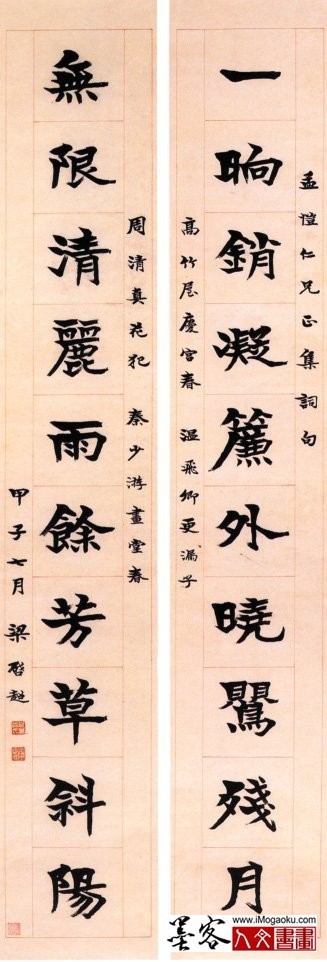 孟愷仁兄正集詞句
一晌銷凝簾外曉鸎殘月
高竹屋慶宮春 溫飛卿更漏子
周清真花犯 秦少游畫堂春
無限清麗雨餘芳草斜陽
甲子七月 梁啓超
www.iMogaoku.com
墨客人文書畫